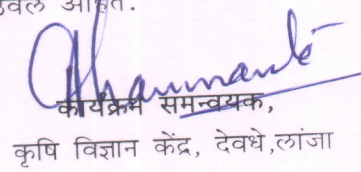 आहेत.
कार्यक्रम समन्वयक,
कृषि विज्ञान केंद्र, देवधे,लांजा